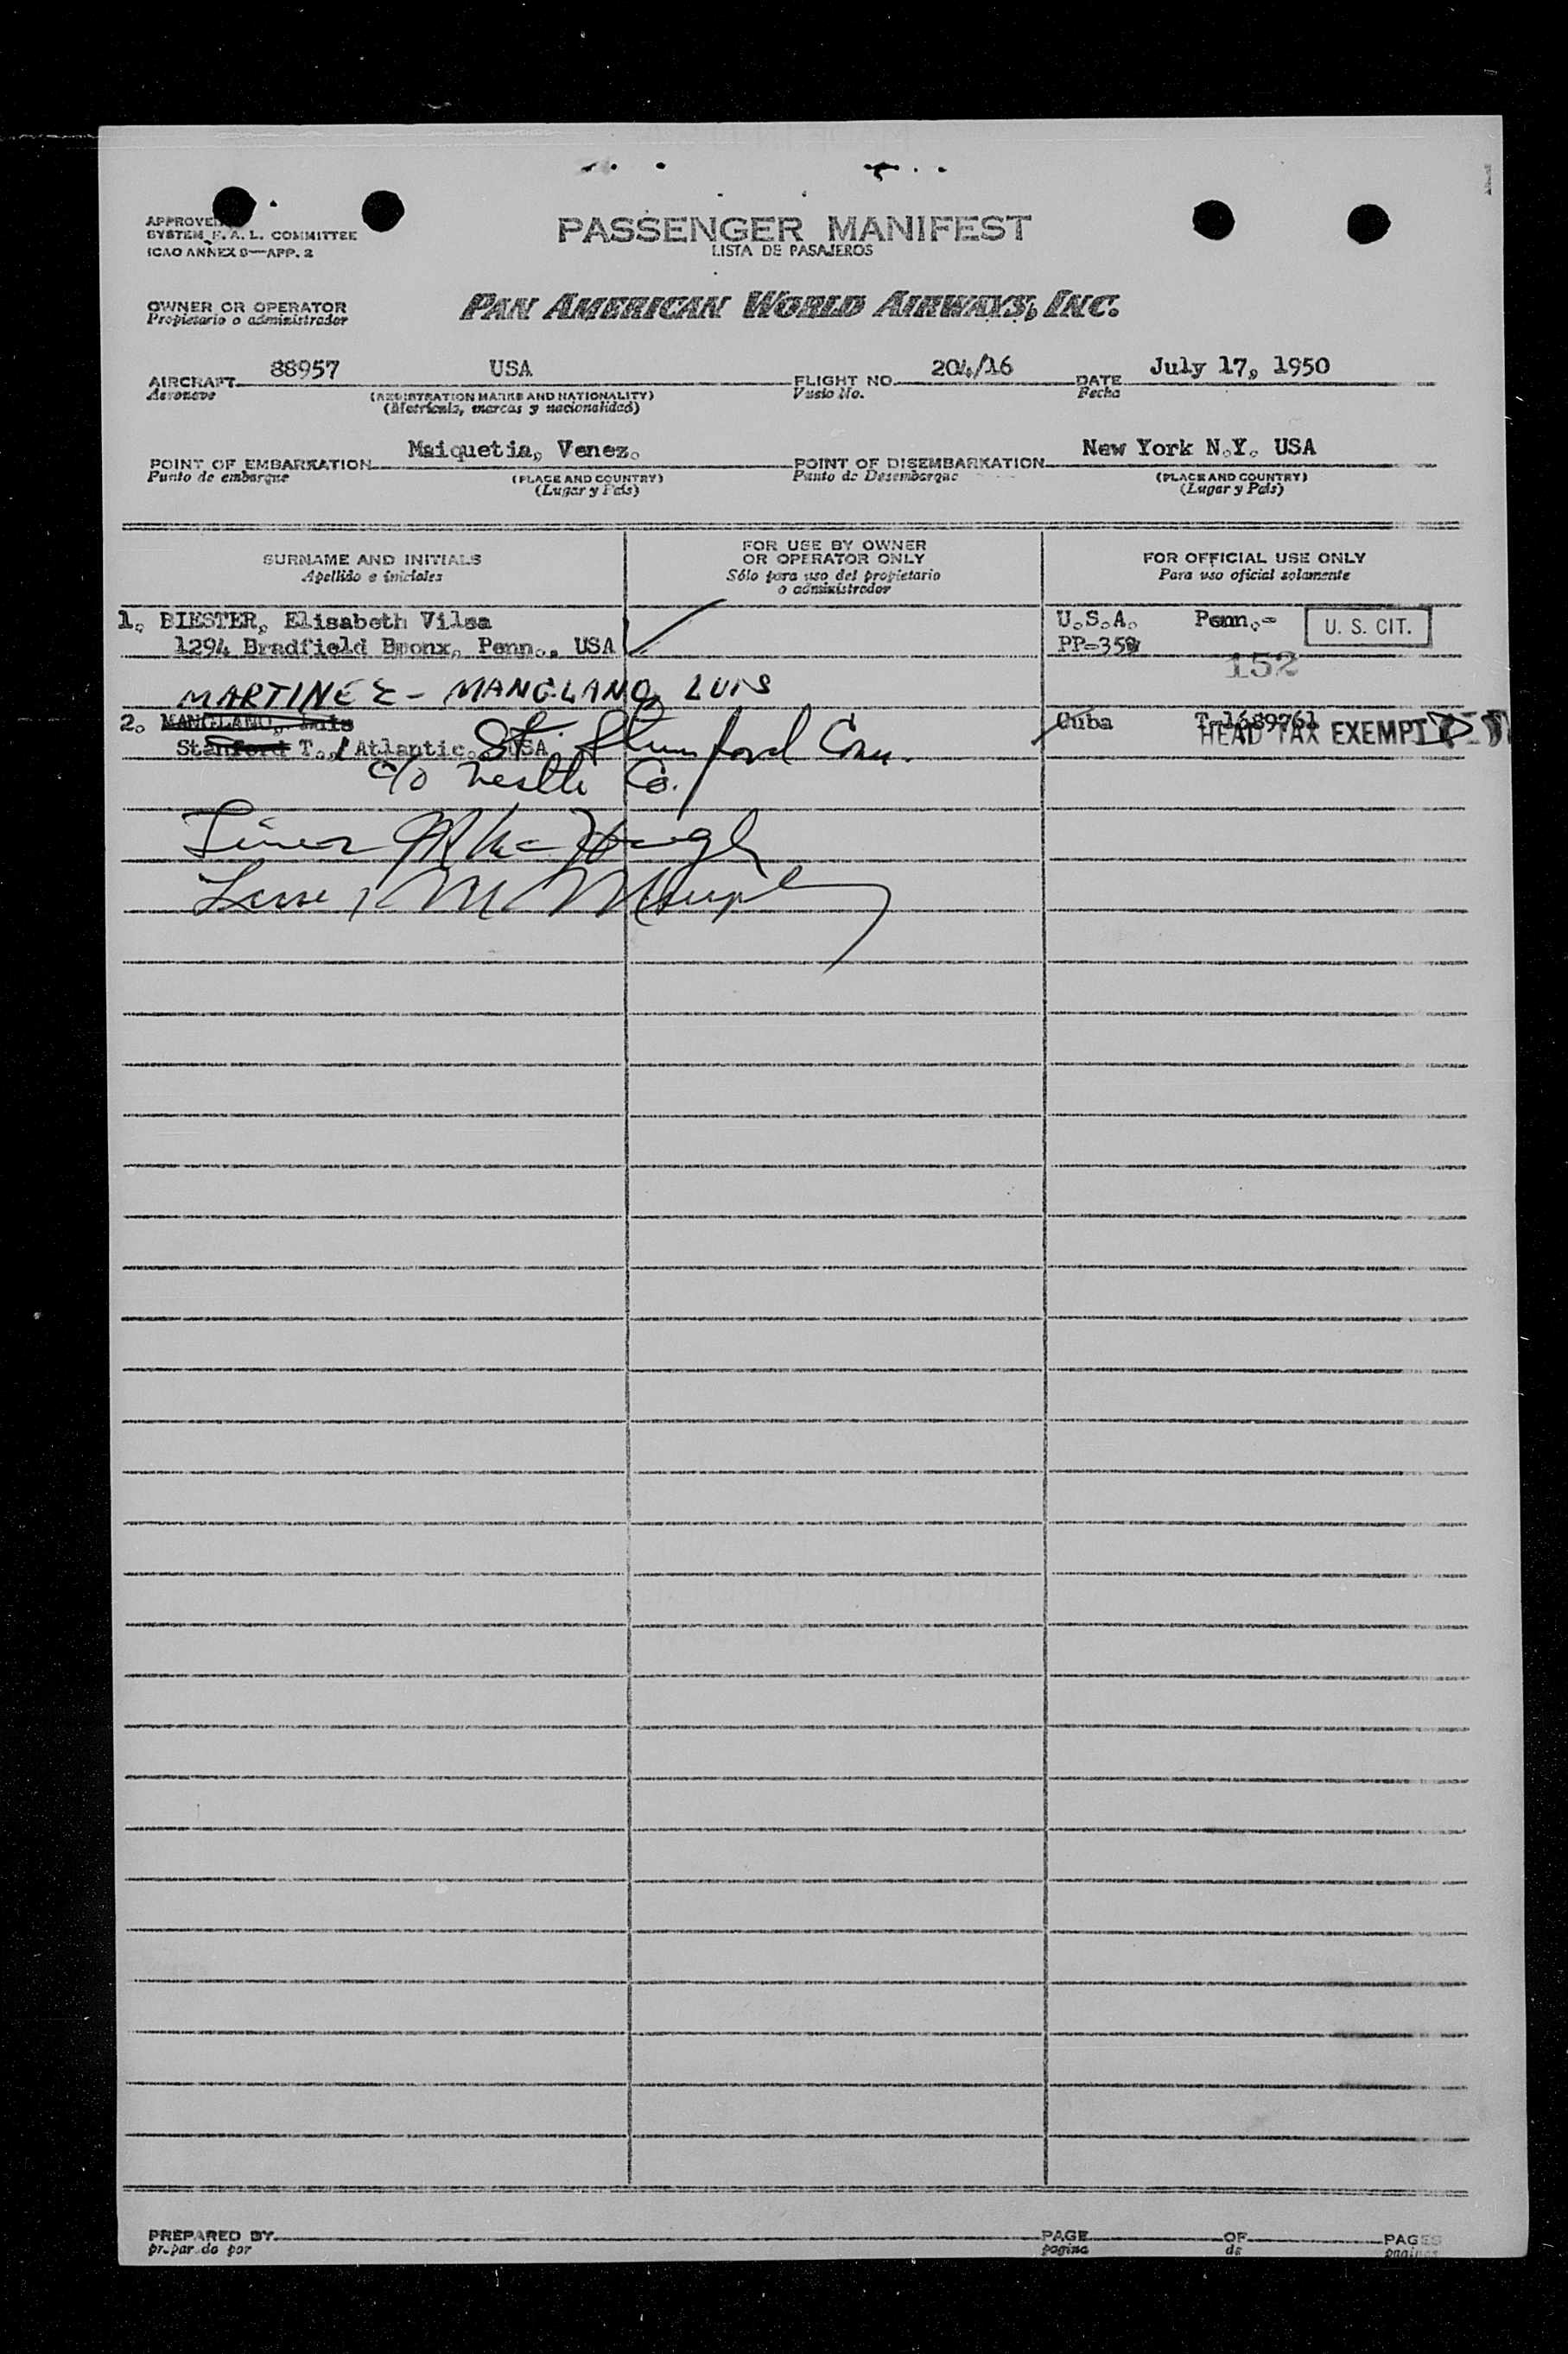 PASSENGER MANIFEST
LISTA DE PASAJEROS
APPROVED
SYSTEM F. A. L. COMMITTEE
ICAO ANNEX 9—APP. 2
OWNER OR OPERATOR
Propietario o administrador
PAN AMERICAN WORLD AIRWAYS, INC.
AIRCRAFT 88957 USA FLIGHT NO. 204/16 DATE July 17, 1950
Aeronave (REGISTRATION MARKS AND NATIONALITY) Vuelo No. Fecha
(Matrícula, marcas y nacionalidad)
POINT OF EMBARKATION Maiquetia, Venez. POINT OF DISEMBARKATION New York N.Y. USA
Punto de embarque (PLACE AND COUNTRY) Punto de Desembarque (PLACE AND COUNTRY)
(Lugar y País) (Lugar y País)
SURNAME AND INITIALS
Apellido e iniciales
FOR USE BY OWNER
OR OPERATOR ONLY
Sólo para uso del propietario
o administrador
FOR OFFICIAL USE ONLY
Para uso oficial solamente
1. BIESTER, Elisabeth Vilsa U.S.A. Penn.- U. S. CIT.
1294 Bradfield Bronx, Penn., USA PP-358
152
MARTINEZ - MANGLANO, LUIS
2. MANGLANO, Luis Cuba T-1689761
HEAD TAX EXEMPT
Stanford T., Atlantic. St. USA Stamford Conn.
c/o Nestle Co.
PREPARED BY PAGE OF PAGES
preparado por pagina de paginas